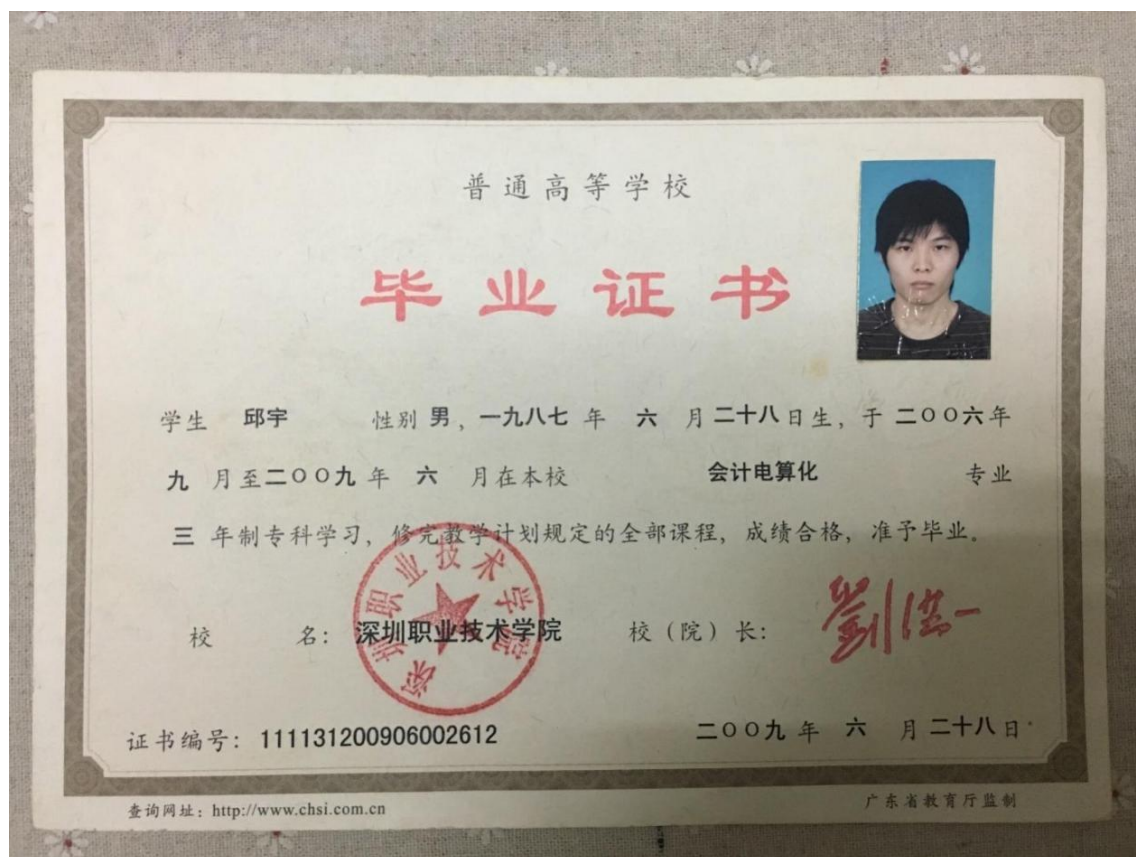 普通高等学校
毕业证书
学生 邱宇 性别 男，一九八七 年 六 月 二十八 日生，于 二〇〇六 年
九 月至 二〇〇九 年 六 月在本校 会计电算化 专业
三 年制专科学习，修完教学计划规定的全部课程，成绩合格，准予毕业。
深圳职业技术学院
校 名：深圳职业技术学院 校（院）长：劉洪一
证书编号：111131200906002612 二〇〇九 年 六 月 二十八 日
查询网址：http://www.chsi.com.cn 广东省教育厅监制